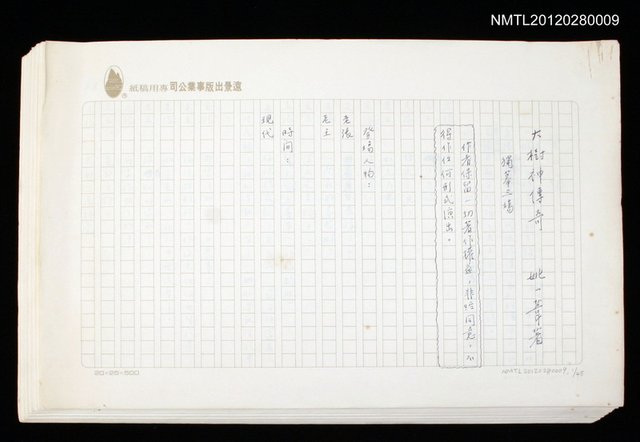 NMTL20120280009
遠景出版事業公司專用稿紙
大樹神傳奇　姚一葦著
獨幕三場
作者保留一切著作權益，非經同意，不
得作任何形式演出。
登場人物：
老張
老王
時間：
現代
20×25=500
NMTL20120280009, 1/45